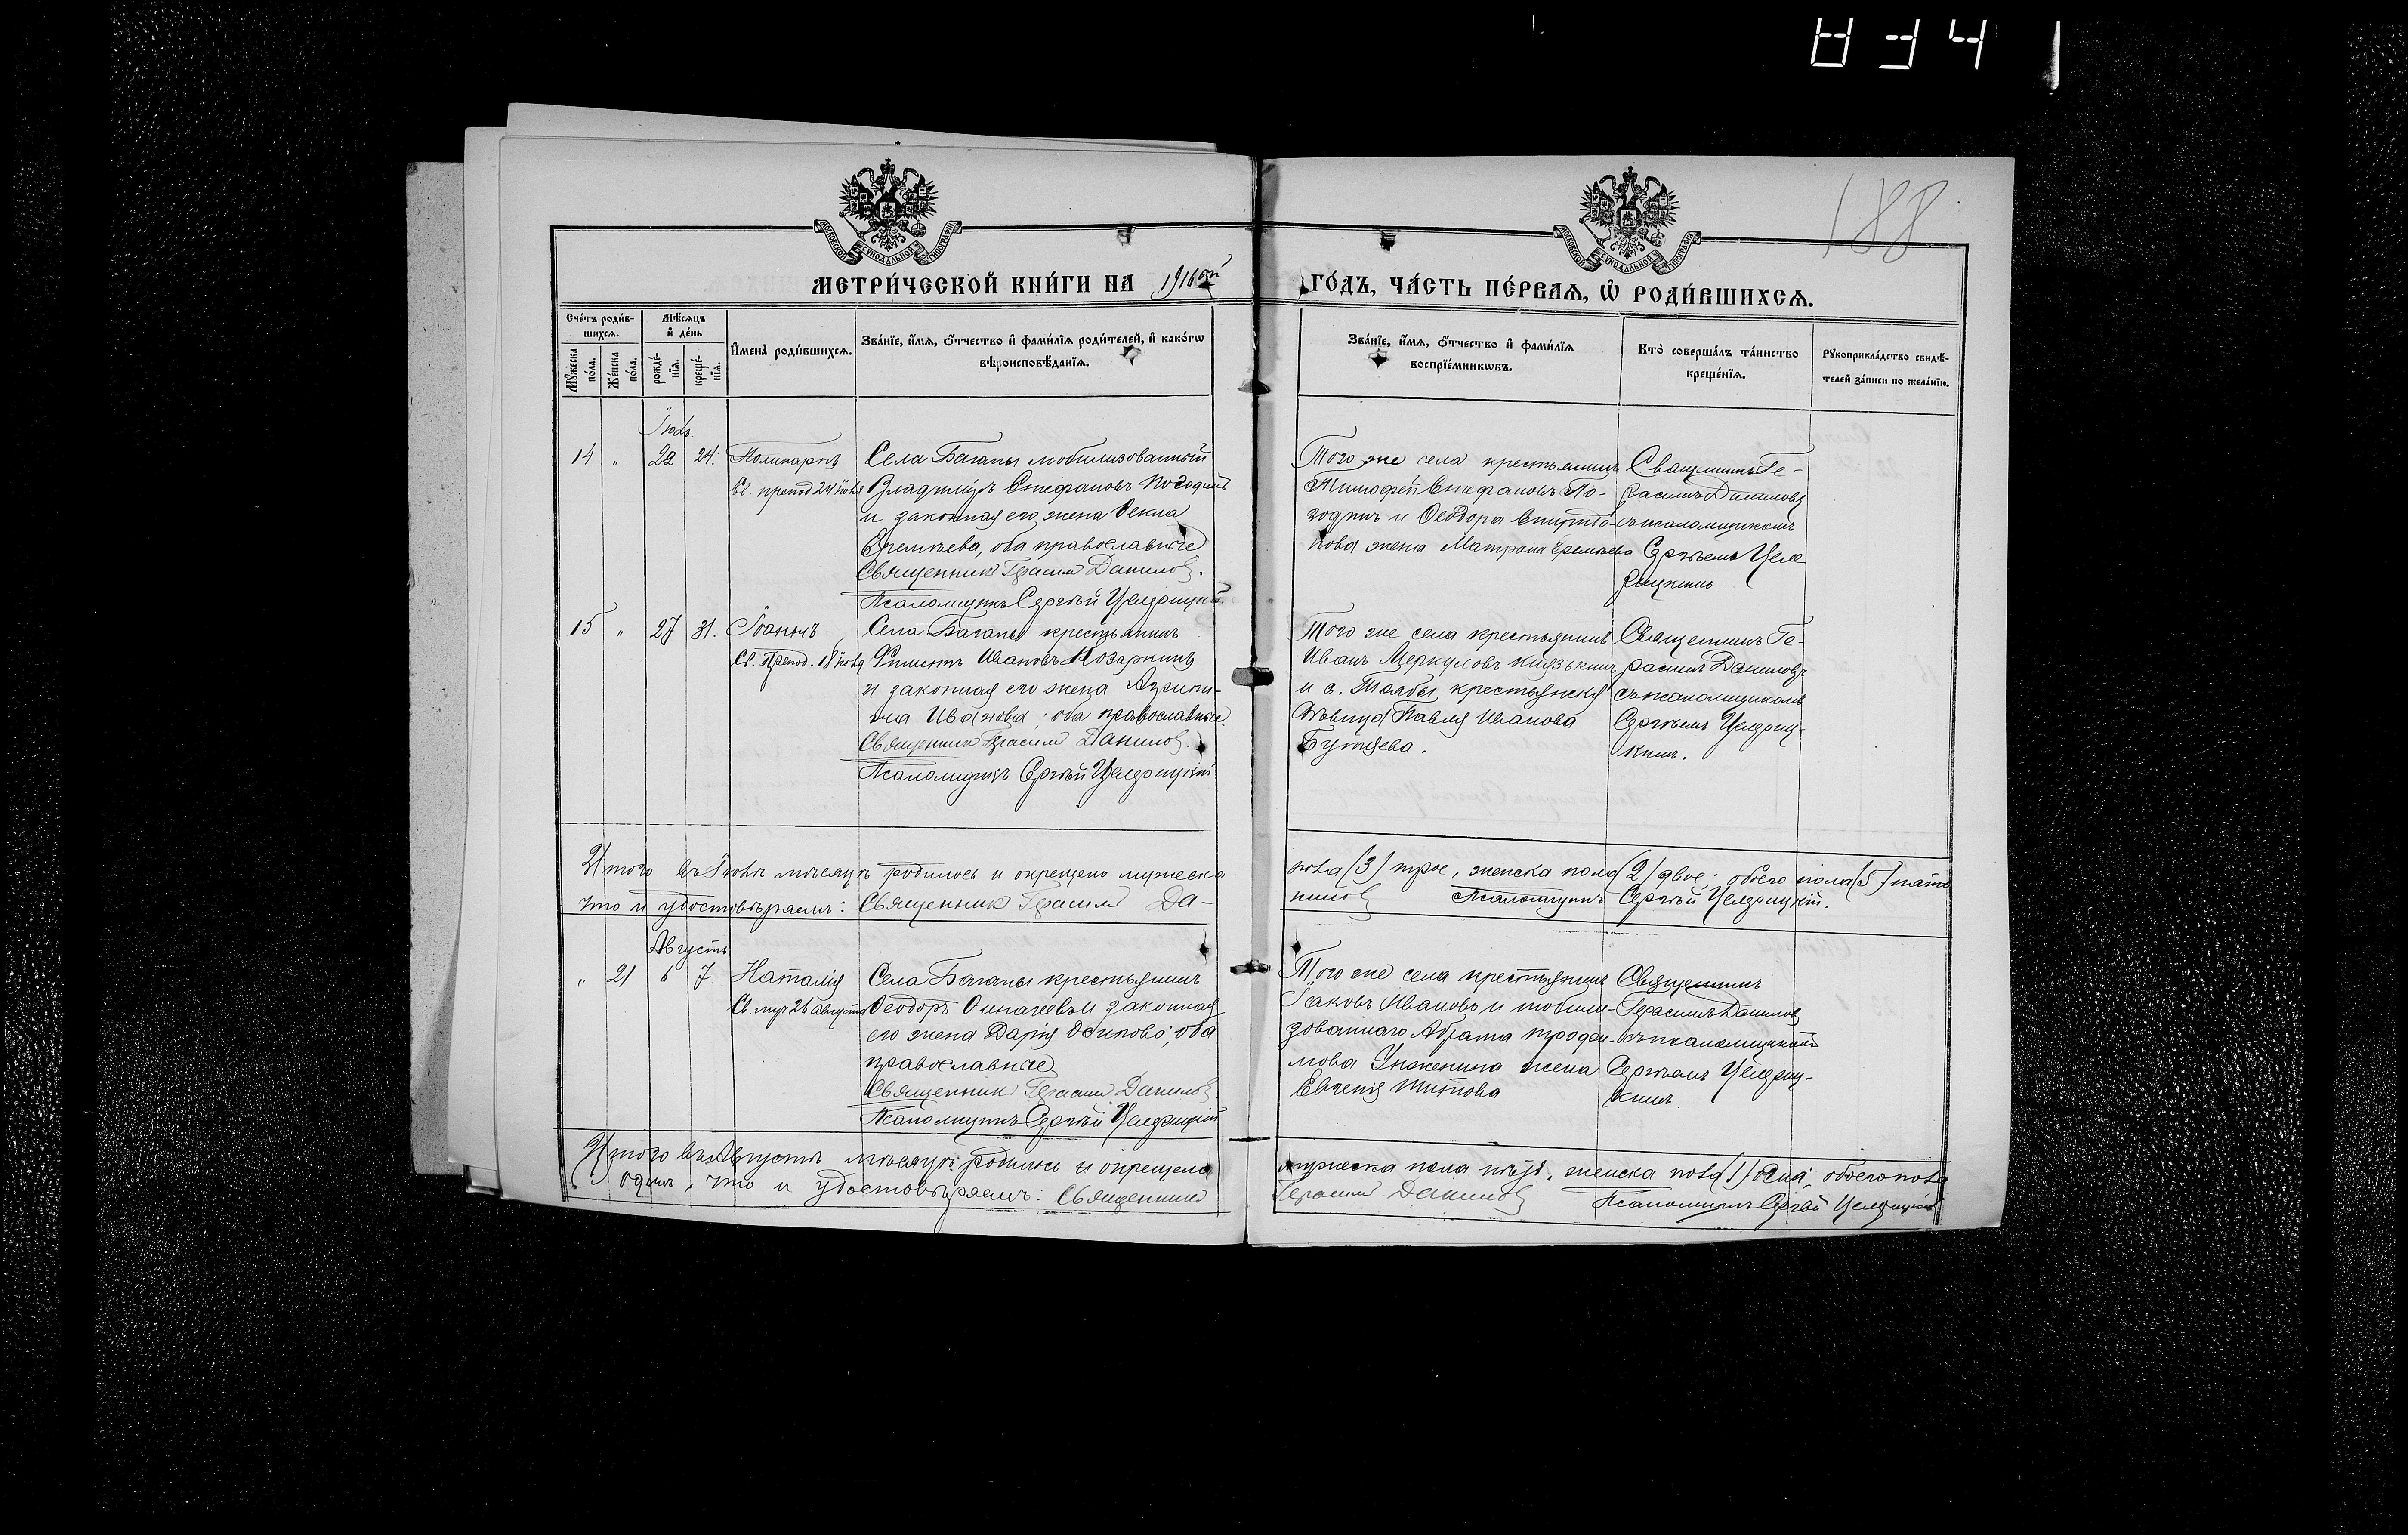 188
МОСКОВСКОЙ СѴНОДАЛЬНОЙ ТИПОГРАФІИ
МОСКОВСКОЙ СѴНОДАЛЬНОЙ ТИПОГРАФІИ
МЕТРИ́ЧЕСКОЙ КНИ́ГИ НА 1916ый ГО́ДЪ, ЧА́СТЬ ПЕ́РВАѦ, Ѡ҆ РОДИ́ВШИХСѦ.
Сче́тъ роди́в-
шихсѧ.
Мꙋ́жеска по́ла.
Же́нска по́ла.
Мѣ́сѧцъ
и҆ де́нь
рожде́-
нїѧ.
креще́-
нїѧ.
И҆мена̀ роди́вшихсѧ.
Зва́нїе, и҆́мѧ, ѻ҆́тчество и҆ фами́лїѧ роди́телей, и҆ како́гѡ
вѣроисповѣ́данїѧ.
Зва́нїе, и҆́мѧ, ѻ҆́тчество и҆ фами́лїѧ
воспрїе́мникѡвъ.
Кто̀ соверша́лъ та́инство
креще́нїѧ.
Рꙋкоприкла́дство свидѣ́-
телей за́писи по жела́нїю.
Іюль.
14 " 22 24. Поликарпъ
Св. препод 24 іюля
Села Баганы мобилизованный
Владиміръ Стефановъ Погодинъ
и законная его жена Ѳекла
Еремѣева, оба православные
Священникъ Герасимъ Даниловъ.
Псаломщикъ Сергѣй Целерицкій
Того же села крестьянинъ
Тимофей Стефановъ По-
годинъ и Ѳеодора Спиридо-
нова жена Матрона Еремѣева
Священникъ Ге-
расимъ Даниловъ
съ псаломщикомъ
Сергѣемъ Целе
рицкимъ
15 " 27 31. Іоаннъ
Св. Препод. 18 іюля
Села Баганы крестьянинъ
Филиппъ Ивановъ Козаркинъ
и законная его жена Агрипи-
на Иванова; оба православные.
Священникъ Герасимъ Даниловъ.
Псаломщикъ Сергѣй Целерицкій
Того же села крестьянинъ
Иванъ Меркуловъ Князькинъ
и с. Толбы, крестьянская
дѣвица Павла Иванова
Бутяева.
Священникъ Ге-
расимъ Даниловъ
съ псаломщикомъ
Сергѣемъ Целериц-
кимъ.
Итого въ Іюлѣ мѣсяцѣ родилось и окрещено мужеска пола (3) трое, женска пола (2) двое; обоего пола (5) пять
что и удостовѣряемъ: Священникъ Герасимъ Да-ниловъ Псаломщикъ Сергѣй Целерицкій.
Августъ
" 21 6 7. Наталія
Св. муч 26 августа
Села Баганы крестьянинъ
Ѳеодоръ и законная
его жена Дарія Осипова; оба
православные
Священникъ Герасимъ Даниловъ
Псаломщикъ Сергѣй Целерицкій
Того же села крестьянинъ
Іаковъ Ивановъ и мобили-
зованнаго Абрама Трофи-
мова жена
Евгенія Титова
Священникъ
Герасимъ Даниловъ
съ псаломщикомъ
Сергѣемъ Целериц-
кимъ.
Итого въ Августѣ мѣсяцѣ родилось и окрещено мужеска пола нѣтъ, женска пола (1) одна; обоего пола
одинъ, что и удостовѣряемъ: Священникъ Герасимъ Даниловъ Псаломщикъ Сергѣй Целерицкій